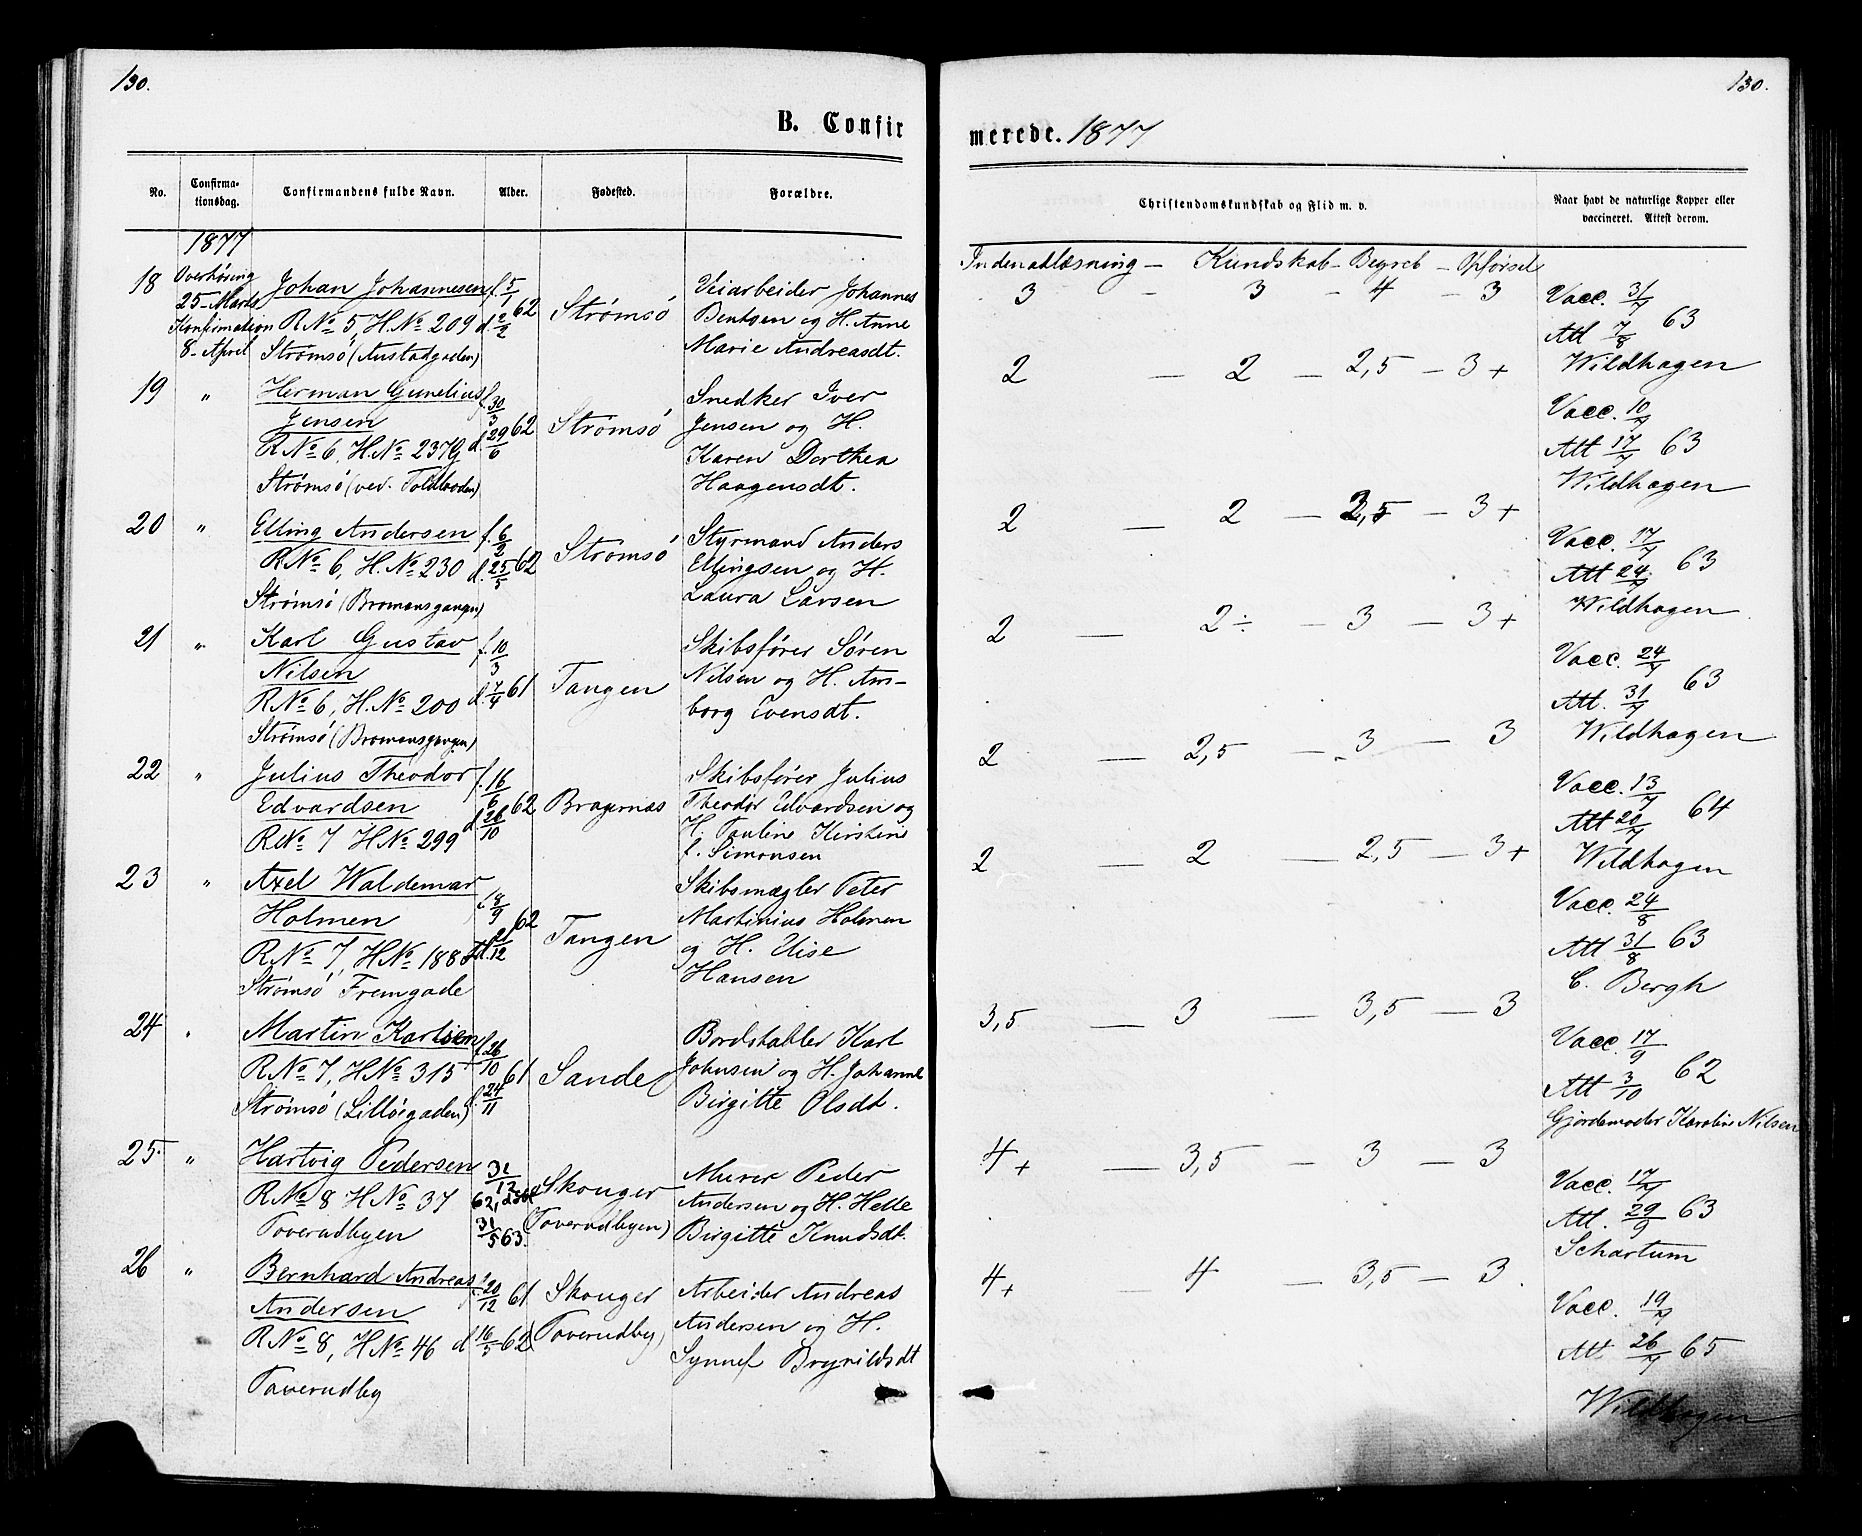 130.
B. Confir
No.
Confirma-
tionsdag.
Confirmandens fulde Navn.
Alder.
Fødested.
Forældre.
1877
18
Overhøring
25 Marts
Konfirmation
8 April
Johan Johannesen
R No 5, H. No 209
Strømsø (Austadgaden)
f. 5/1 62
d. 2/2
Strømsø
Veiarbeider Johannes
Bentsen og H. Anne
Marie Andreasdt.
19 "
Herman Gunelius
Jensen
R No 6, H. No 237G
Strømsø (ved. Toldboden)
f. 30/3 62
d. 29/6
Strømsø
Snedker Iver
Jensen og H.
Karen Dorthea
Haagensdt.
20 "
Elling Andersen
R No 6, H. No 230
Strømsø (Bromansgangen)
f. 6/2 62
d. 25/5
Strømsø
Styrmand Anders
Ellingsen og H.
Laura Larsen
21 "
Karl Gustav
Nilsen
R No 6, H. No 200
Strømsø (Bromansgangen)
f. 10/3 61
d. 7/4
Tangen
Skibsfører Søren
Nilsen og H. Am-
borg Evensdt.
22 "
Julius Theodor
Edvardsen
R No 7 H No 299
f. 16/6 62
d. 26/10
Bragernæs
Skibsfører Julius
Theodor Edvardsen og
H. Pauline Kirstine
f. Simonsen
23 "
Axel Waldemar
Holmen
R No 7, H No 188
Strømsø Fremgade
f. 8/9 62
Tangen
Skibsmægler Peter
Martinius Holmen
og H. Elise
Hansen
24 "
Martin Karlsen
R No 7, H No 315
Strømsø (Lilløegaden)
f. 26/10 61
d. 24/11
Sande
Bordstabler Karl
Johnsen og H. Johanne
Birgitte Olsdt.
25. "
Hartvig Pedersen
R No 8 H No 37
Toverudbyen
31/12
62,
31/5 63.
Skouger
(Toverudbyen)
Murer Peder
Andersen og H. Helle
Birgitte Knudsdt.
26 "
Bernhard Andreas
Andersen
R No 8, H No 46
Toverudby
f. 20/12 61
d. 16/5 62
Skouger
(Toverudby)
Arbeider Andreas
Andersen og H.
Synnef Brynildsdt
130.
merede. 1877
Christendomskundskab og Flid m. v.
Naar havt de naturlige Kopper eller
vaccineret. Attest derom.
Indenadlæsning - Kundskab - Begreb - Opførsel
3 - 3 - 4 - 3
Vacc. 31/7
Att 7/8 63
Wildhagen
2 - 2 - 2,5 - 3+
Vacc. 10/7
Att 17/7 63
Wildhagen
2 - 2 - 2,5 - 3+
Vacc. 17/7
Att 24/7 63
Wildhagen
2 - 2÷ - 3 - 3+
Vacc. 24/7
Att. 31/7 63
Wildhagen
2 - 2,5 - 3 - 3
Vacc. 13/7
Att 20/7 64
Wildhagen
2 - 2 - 2,5 - 3+
Vacc. 24/8
Att 31/8 63
C. Bergh
3,5 - 3 - 3,5 - 3
Vacc. 17/9
Att 3/10 62
Gjordemoder Karoline Nilsen
4+ - 3,5 - 3 - 3
Vacc. 17/7
Att. 29/9 63
Schartum
4+ - 4 - 3,5 - 3.
Vacc. 19/7
Att. 26/7 65
Wildhagen